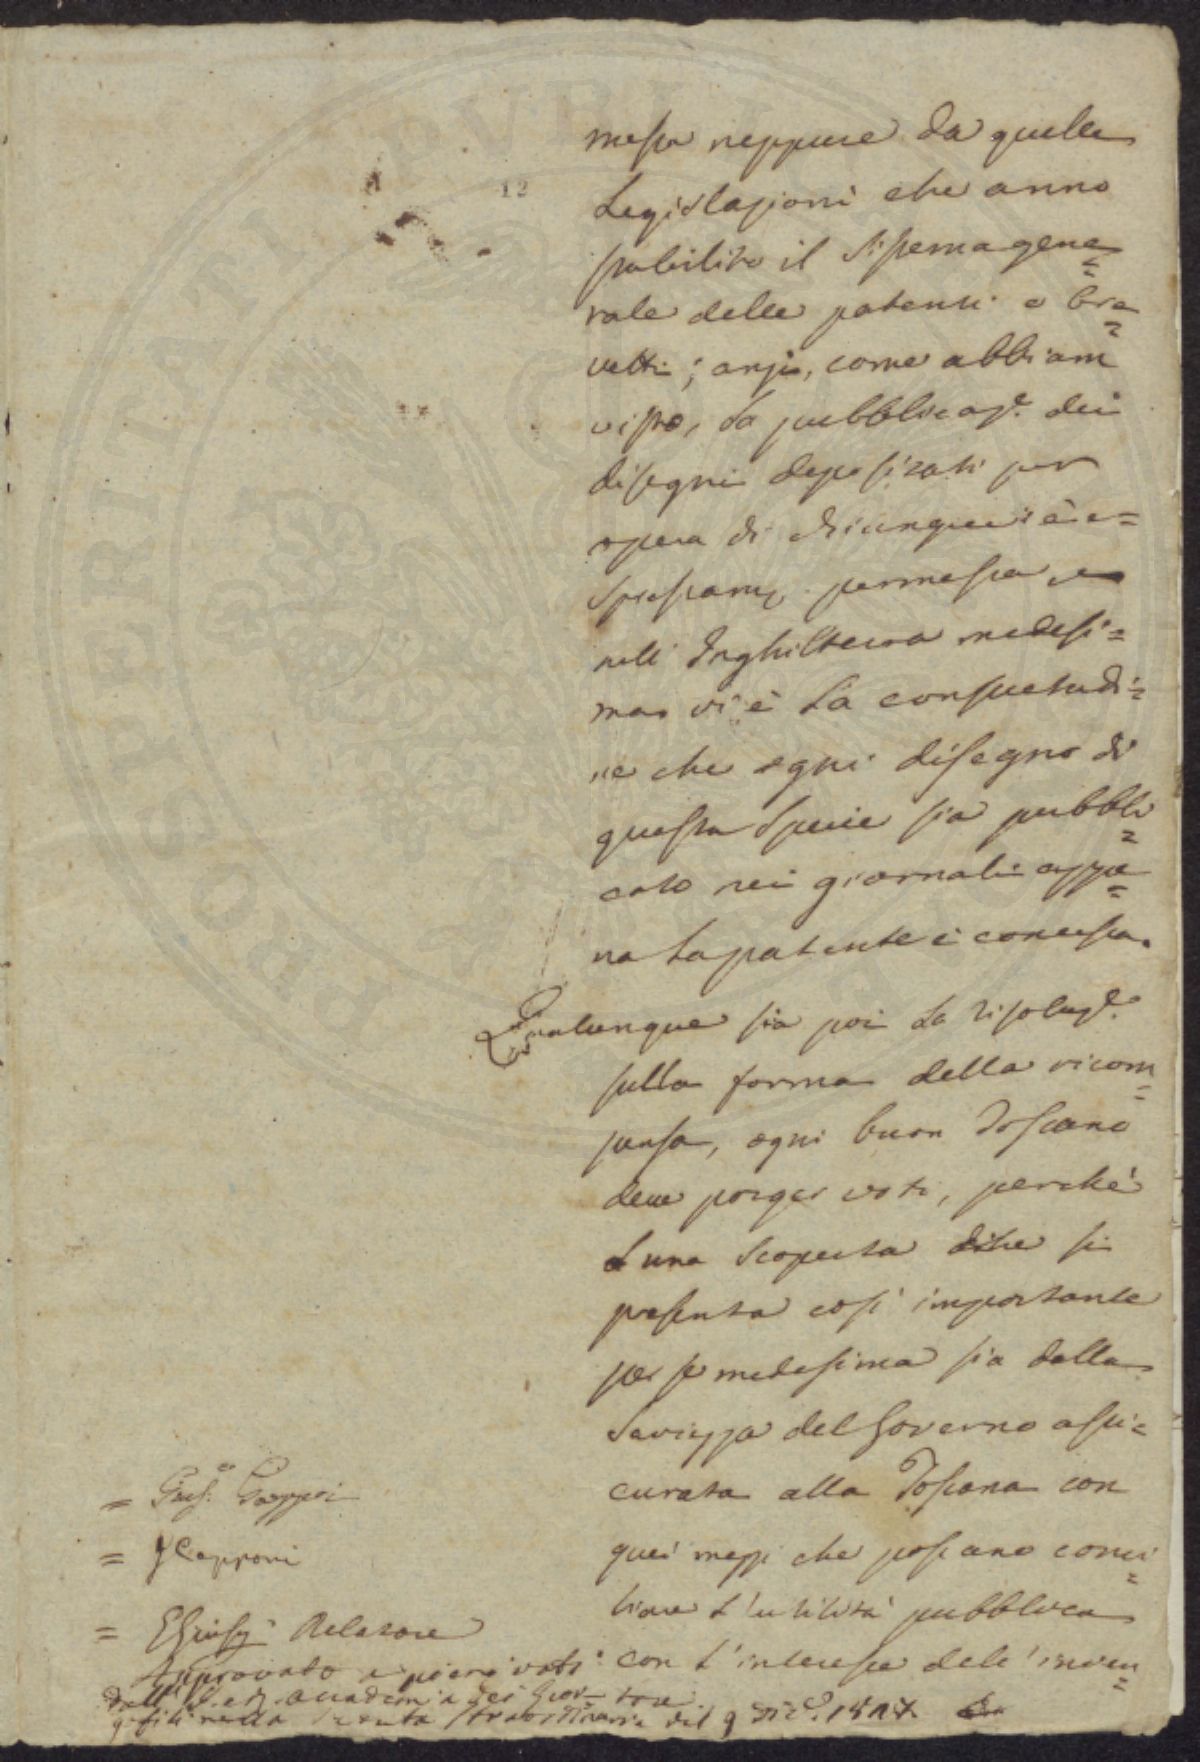 12
messa neppure da quelle
Legislazioni che anno
stabilito il sistema gene=
rale delle patenti e bre=
vetti; anzi, come abbiam
visto, la pubblicaz.e dei
disegni depositati per
opera di chiunque è e=
spressam.e permessa, e
nell'Inghilterra medesi=
ma vi è la consuetudi=
ne che ogni disegno di
questa specie sia pubbli=
cato nei giornali appe=
na la patente è concessa.
Qualunque sia poi la risoluz.e
sulla forma della ricom=
pensa, ogni buon Toscano
deve porger voti, perchè
una scoperta che si
presenta così importante
per se medesima sia dalla
Saviezza del Governo assi=
curata alla Toscana con
quei mezzi che possano conci=
liare l'utilità pubblica
con l'interesse dell'inven=
tore.
= Gazzeri
= Capponi
= Relatore
Approvato a pieni voti
dall' Accademia dei Geor=
gofili nella Seduta straordinaria del 9 Dic.e 1817.